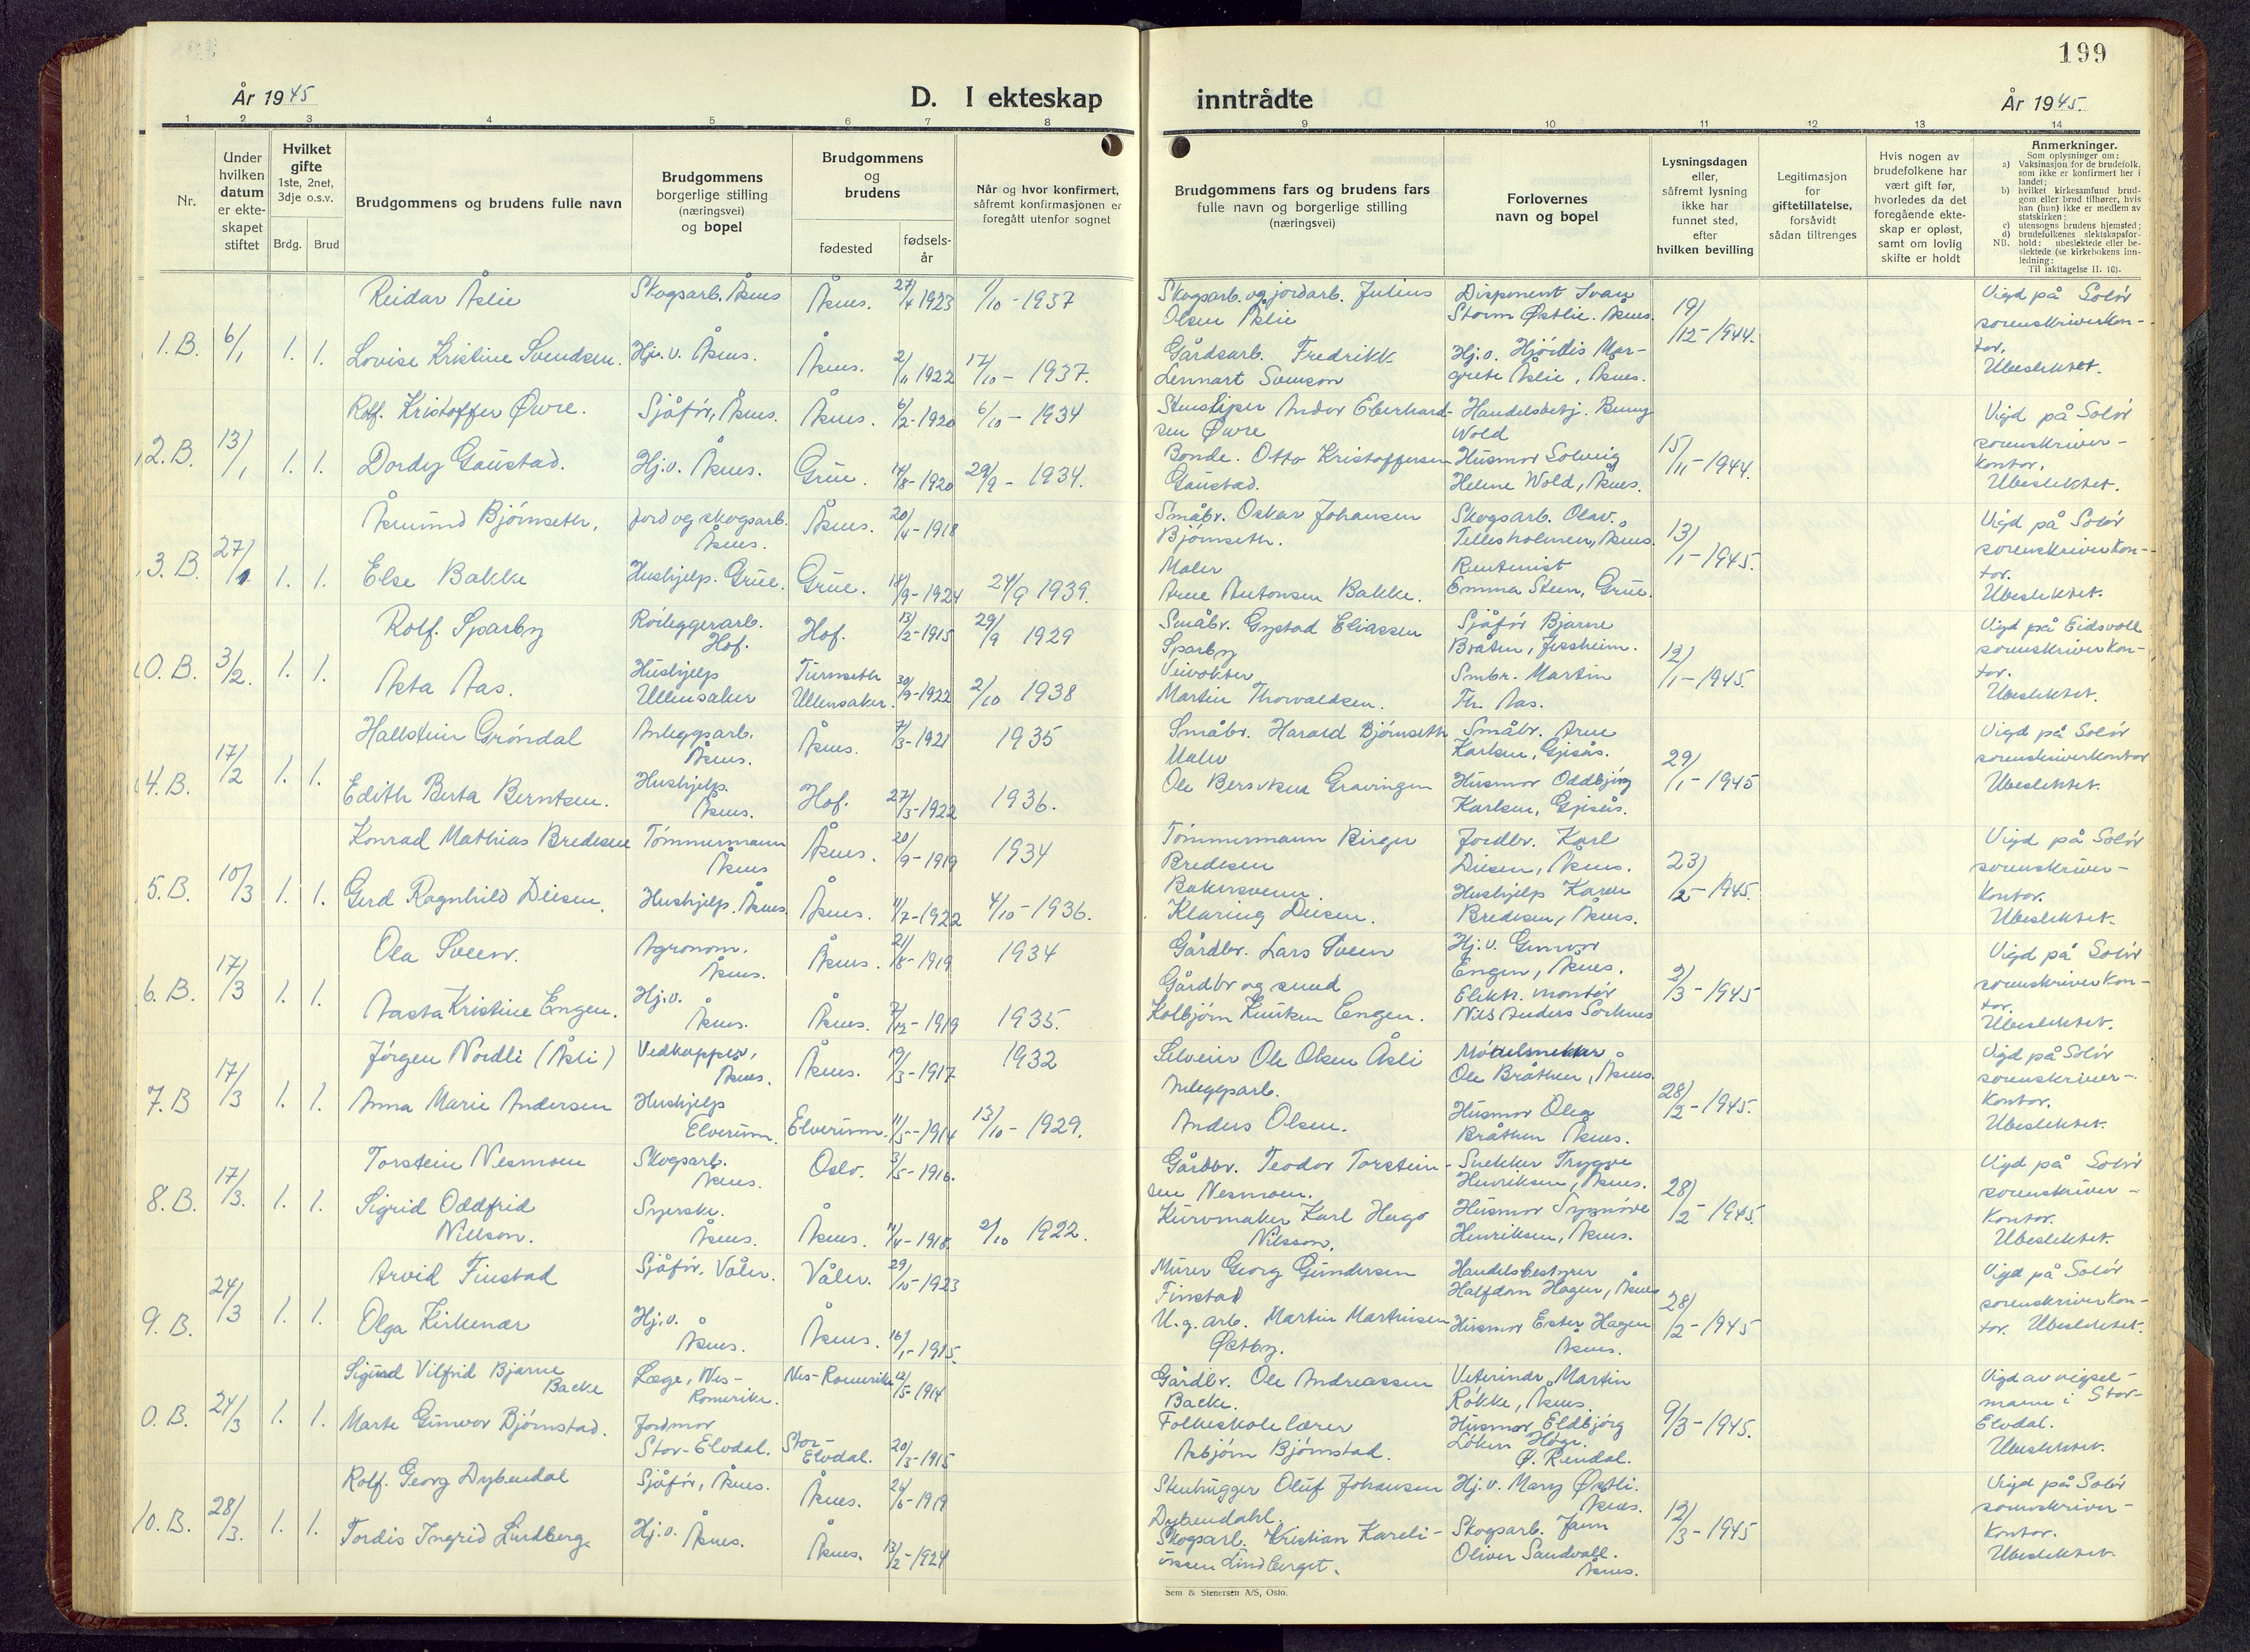 199
År 1945
D. I ekteskap
inntrådte
År 1945.
1 2 3 4 5 6 7 8 9 10 11 12 13 14
Nr.
Under
hvilken
datum
er ekte-
skapet
stiftet
Hvilket
gifte
1ste, 2net,
3dje o.s.v.
Brdg.
Brud
Brudgommens og brudens fulle navn
Brudgommens
borgerlige stilling
(næringsvei)
og bopel
Brudgommens
og
brudens
fødested
fødsels-
år
Når og hvor konfirmert,
såfremt konfirmasjonen er
foregått utenfor sognet
Brudgommens fars og brudens fars
fulle navn og borgerlige stilling
(næringsvei)
Forlovernes
navn og bopel
Lysningsdagen
eller,
såfremt lysning
ikke har
funnet sted,
efter
hvilken bevilling
Legitimasjon
for
giftetillatelse,
forsåvidt
sådan tiltrenges
Hvis nogen av
brudefolkene har
vært gift før,
hvorledes da det
foregående ekte-
skap er opløst,
samt om lovlig
skifte er holdt
Anmerkninger.
Som oplysninger om:
a) Vaksinasjon for de brudefolk,
som ikke er konfirmert her i
landet;
b) hvilket kirkesamfund brud-
gom eller brud tilhører, hvis
han (hun) ikke er medlem av
statskirken;
c) utensogns brudens hjemsted;
d) brudefolkenes slektskapsfor-
hold: ubeslektede eller be-
slektede (se kirkebokens inn-
ledning:
NB.
Til iakttagelse II. 10).
1.B. 6/1 1. 1.
Reidar Åslie
Skogsarb. Åsnes
Åsnes. 27/4 1923 1/10-1937
Lovise Kristine Svendsen.
Hj.v. Åsnes.
Åsnes. 2/11 1922 17/10-1937.
Skogsarb. og jordarb. Julius
Olsen Åslie
Gårdsarb. Fredrikk
Lennart Svenson
Disponent Ivan
Storm Østlie. Åsnes.
Hj.v. Hjördis Mar-
grete Åslie, Åsnes.
19/12-1944.
Vigd på Solör
sorenskriverkon-
tor.
Ubeslektet.
2.B. 13/1 1. 1.
Rolf. Kristoffer Øvre.
Sjåför, Åsnes.
Åsnes. 6/2-1920 6/10-1934
Dordy Gaustad.
Hj.v. Åsnes.
Grue. 14/8-1920 29/9-1934.
Stensliper Andor Eberhard-
sen Øvre
Bonde. Otto Kristoffersen
Gaustad.
Handelsbetj. Benny
Wold
Husmor Solveig
Helene Wold, Åsnes.
15/11-1944.
Vigd på Solör
sorenskriver-
kontor.
Ubeslektet.
3.B. 27/1 1. 1.
Åsmund Björnseth,
Jord og skogsarb.
Åsnes.
Åsnes. 20/4-1918
Else Bakke
Hushjelp. Grue.
Grue. 18/9-1924 24/9 1939.
Småbr. Oskar Johansen
Björnseth.
Maler
Arne Antonsen Bakke.
Skogsarb. Olav.
Tellesholmen, Åsnes.
Rentenist
Emma Steen, Grue.
13/1-1945.
Vigd på Solör
sorenskriverkon-
tor.
Ubeslektet.
0.B. 3/2. 1. 1.
Rolf. Sparby
Röileggerarb.
Hof.
Hof. 13/2-1915 29/9 1929
Asta Aas.
Hushjelp
Ullensaker
Ullensaker. 30/9-1922 2/10 1938
Småbr. Gystad Eliassen
Sparby
Veivokter
Martin Thorvaldsen.
Sjåför Bjarne
Bråten, Jessheim.
Smbr. Martin
Th. Aas.
12/1-1945.
Vigd på Eidsvoll
sorenskriverkon-
tor.
Ubeslektet.
4.B. 17/2 1. 1.
Hallstein Gröndal
Anleggsarb.
Åsnes.
Åsnes. 7/3-1921 1935
Edith Berta Berntsen.
Hushjelp.
Åsnes.
Hof. 27/3-1922 1936.
Småbr. Harald Björnseth
Maler
Ole Gravingen
Småbr. Arne
Karlsen, Gjesås.
Husmor Oddbjörg
Karlsen, Gjesås.
29/1-1945
Vigd på Solör
sorenskriverkontor
Ubeslektet.
5.B. 10/3 1. 1.
Konrad Mathias Bredesen
Tömmermann
Åsnes
Åsnes. 20/9-1919 1934
Gerd Ragnhild Diesen.
Hushjelp. Åsnes
Åsnes. 11/7-1922 4/10-1936.
Tömmermann Birger
Bredesen
Bakersvenn
Klaring Diesen.
Jordbr. Karl
Diesen, Åsnes.
Hushjelp Karen
Bredesen, Åsnes.
23/2-1945.
Vigd på Solör
sorenskriver-
kontor.
Ubeslektet.
6.B. 17/3 1. 1.
Ola Sveen.
Agronom.
Åsnes.
Åsnes. 21/8-1919 1934
Aasta Kristine Engen.
Hj.v.
Åsnes.
Åsnes. 2/12-1919 1935.
Gårdbr. Lars Sveen
Gårdbr og smed
Kolbjörn Knutsen Engen.
Hj.v. Gunvor
Engen, Åsnes.
Elektr. montör
Nils Anders Sorknes
2/3-1945
Vigd på Solör
sorenskriverkon-
tor.
Ubeslektet.
7.B 17/3 1. 1.
Jörgen Nordli (Åsli)
Vedkapper,
Åsnes.
Åsnes. 19/3-1917 1932
Anna Marie Andersen
Hushjelp
Elverum.
Elverum. 11/5-1914 13/10-1929.
Selveier Ole Olsen Åsli
Anleggsarb.
Anders Olsen.
Möbelsnekker
Ole Bråthen, Åsnes.
Husmor Olea
Bråthen Åsnes.
28/2-1945.
Vigd på Solör
sorenskriver-
kontor.
Ubeslektet.
8.B. 17/3. 1. 1.
Torstein Nesmoen
Skogsarb.
Åsnes.
Oslo. 3/5-1916.
Sigrid Oddfrid
Nilson.
Syerske.
Åsnes.
Åsnes. 11/4-1918. 2/10 1922.
Gårdbr. Teodor Torstein-
sen Nesmoen.
Kurvmaker Karl Hugo
Nilsson.
Snekker Trygve
Henriksen, Åsnes.
Husmor Synnöve
Henriksen, Åsnes.
28/2-1945.
Vigd på Solör
sorenskriver-
kontor.
Ubeslektet.
9.B. 24/3 1. 1.
Arvid Finstad
Sjåför. Våler.
Våler. 29/10-1923
Olga Kirkenær
Hj.v.
Åsnes.
Åsnes. 16/1-1915.
Murer Georg Gundersen
Finstad
U.g. arb. Martin Martinsen
Østby.
Handelsbestyrer
Halfdan Hagen, Åsnes
Husmor Ester Hagen
Åsnes.
28/2-1945
Vigd på Solör
sorenskriverkon-
tor. Ubeslektet.
0.B. 24/3 1. 1.
Sigurd Vilfrid Bjarne
Backe
Læge, Nes-
Romerike.
Nes-Romerike 12/5-1914
Marte Gunvor Björnstad.
Jordmor
Stor-Elvdal.
Stor-
Elvdal. 20/3-1915
Gårdbr. Ole Andreassen
Backe.
Folkeskolelærer
Asbjörn Björnstad.
Veterinær Martin
Rökke, Åsnes.
Husmor Eldbjörg
Löken Höye.
Ø. Rendal.
9/3-1945.
Vigd av vigsel-
mann i Stor-
Elvdal.
Ubeslektet.
10.B. 28/3. 1. 1.
Rolf. Georg Dybendal
Sjåför, Åsnes.
Åsnes. 26/6-1919
Tordis Ingrid Lindberg.
Hj.v. Åsnes.
Åsnes. 13/2-1924
Stenhugger Oluf Johansen
Dybendahl.
Skogsarb. Kristian Kareli-
ussen Lindberget.
Hj.v. Mary Østli.
Åsnes.
Skogsarb. Jann
Oliver Sandvoll.
Åsnes.
12/3-1945
Vigd på Solör
sorenskriver-
kontor.
Ubeslektet.
Sem & Stenersen A/S, Oslo.